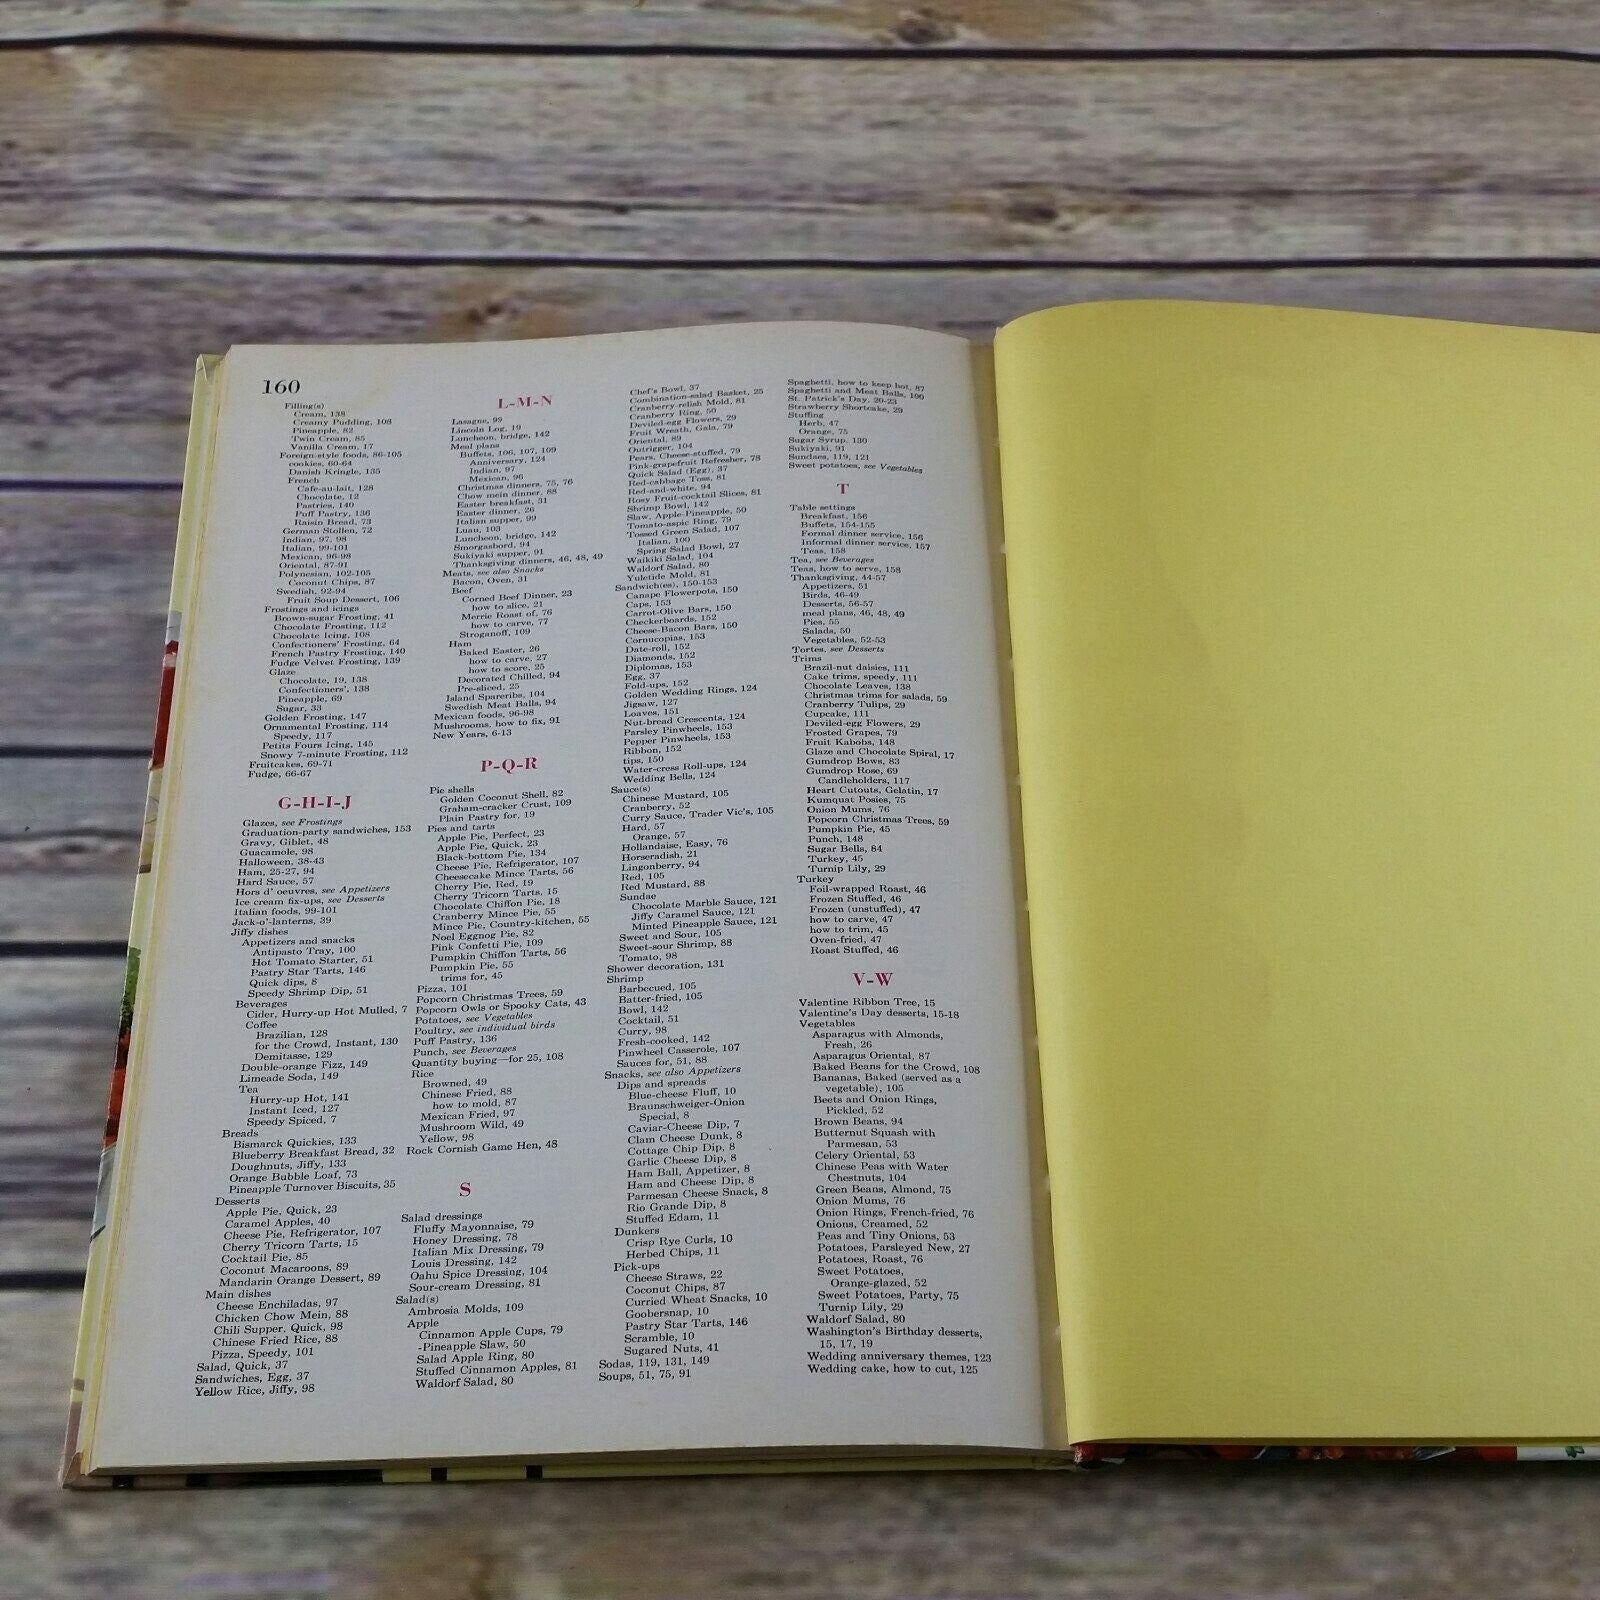 160
Filling(s)
Cream, 138
Creamy Pudding, 108
Pineapple, 82
Twin Cream, 85
Vanilla Cream, 17
Foreign-style foods, 86-105
cookies, 60-64
Danish Kringle, 135
French
Cafe-au-lait, 128
Chocolate, 12
Pastries, 140
Puff Pastry, 136
Raisin Bread, 73
German Stollen, 72
Indian, 97, 98
Italian, 99-101
Mexican, 96-98
Oriental, 87-91
Polynesian, 102-105
Coconut Chips, 87
Swedish, 92-94
Fruit Soup Dessert, 106
Frostings and icings
Brown-sugar Frosting, 41
Chocolate Frosting, 112
Chocolate Icing, 108
Confectioners' Frosting, 64
French Pastry Frosting, 140
Fudge Velvet Frosting, 139
Glaze
Chocolate, 19, 138
Confectioners', 138
Pineapple, 69
Sugar, 33
Golden Frosting, 147
Ornamental Frosting, 114
Speedy, 117
Petits Fours Icing, 145
Snowy 7-minute Frosting, 112
Fruitcakes, 69-71
Fudge, 66-67
G-H-I-J
Glazes, see Frostings
Graduation-party sandwiches, 153
Gravy, Giblet, 48
Guacamole, 98
Halloween, 38-43
Ham, 25-27, 94
Hard Sauce, 57
Hors d' oeuvres, see Appetizers
Ice cream fix-ups, see Desserts
Italian foods, 99-101
Jack-o'-lanterns, 39
Jiffy dishes
Appetizers and snacks
Antipasto Tray, 100
Hot Tomato Starter, 51
Pastry Star Tarts, 146
Quick dips, 8
Speedy Shrimp Dip, 51
Beverages
Cider, Hurry-up Hot Mulled, 7
Coffee
Brazilian, 128
for the Crowd, Instant, 130
Demitasse, 129
Double-orange Fizz, 149
Limeade Soda, 149
Tea
Hurry-up Hot, 141
Instant Iced, 127
Speedy Spiced, 7
Breads
Bismarck Quickies, 133
Blueberry Breakfast Bread, 32
Doughnuts, Jiffy, 133
Orange Bubble Loaf, 73
Pineapple Turnover Biscuits, 35
Desserts
Apple Pie, Quick, 23
Caramel Apples, 40
Cheese Pie, Refrigerator, 107
Cherry Tricorn Tarts, 15
Cocktail Pie, 85
Coconut Macaroons, 89
Mandarin Orange Dessert, 89
Main dishes
Cheese Enchiladas, 97
Chicken Chow Mein, 88
Chili Supper, Quick, 98
Chinese Fried Rice, 88
Pizza, Speedy, 101
Salad, Quick, 37
Sandwiches, Egg, 37
Yellow Rice, Jiffy, 98
L-M-N
Lasagne, 99
Lincoln Log, 19
Luncheon, bridge, 142
Meal plans
Buffets, 106, 107, 109
Anniversary, 124
Indian, 97
Mexican, 96
Christmas dinners, 75, 76
Chow mein dinner, 88
Easter breakfast, 31
Easter dinner, 26
Italian supper, 99
Luau, 103
Luncheon, bridge, 142
Smorgasbord, 94
Sukiyaki supper, 91
Thanksgiving dinners, 46, 48, 49
Meats, see also Snacks
Bacon, Oven, 31
Beef
Corned Beef Dinner, 23
how to slice, 21
Merrie Roast of, 76
how to carve, 77
Stroganoff, 109
Ham
Baked Easter, 26
how to carve, 27
how to score, 25
Decorated Chilled, 94
Pre-sliced, 25
Island Spareribs, 104
Swedish Meat Balls, 94
Mexican foods, 96-98
Mushrooms, how to fix, 91
New Years, 6-13
P-Q-R
Pie shells
Golden Coconut Shell, 82
Graham-cracker Crust, 109
Plain Pastry for, 19
Pies and tarts
Apple Pie, Perfect, 23
Apple Pie, Quick, 23
Black-bottom Pie, 134
Cheese Pie, Refrigerator, 107
Cheesecake Mince Tarts, 56
Cherry Pie, Red, 19
Cherry Tricorn Tarts, 15
Chocolate Chiffon Pie, 18
Cranberry Mince Pie, 55
Mince Pie, Country-kitchen, 55
Noel Eggnog Pie, 82
Pink Confetti Pie, 109
Pumpkin Chiffon Tarts, 56
Pumpkin Pie, 55
trims for, 45
Pizza, 101
Popcorn Christmas Trees, 59
Popcorn Owls or Spooky Cats, 43
Potatoes, see Vegetables
Poultry, see individual birds
Puff Pastry, 136
Punch, see Beverages
Quantity buying—for 25, 108
Rice
Browned, 49
Chinese Fried, 88
how to mold, 87
Mexican Fried, 97
Mushroom Wild, 49
Yellow, 98
Rock Cornish Game Hen, 48
S
Salad dressings
Fluffy Mayonnaise, 79
Honey Dressing, 78
Italian Mix Dressing, 79
Louis Dressing, 142
Oahu Spice Dressing, 104
Sour-cream Dressing, 81
Salad(s)
Ambrosia Molds, 109
Apple
Cinnamon Apple Cups, 79
-Pineapple Slaw, 50
Salad Apple Ring, 80
Stuffed Cinnamon Apples, 81
Waldorf Salad, 80
Chef's Bowl, 37
Combination-salad Basket, 25
Cranberry-relish Mold, 81
Cranberry Ring, 50
Deviled-egg Flowers, 29
Fruit Wreath, Gala, 79
Oriental, 89
Outrigger, 104
Pears, Cheese-stuffed, 79
Pink-grapefruit Refresher, 78
Quick Salad (Egg), 37
Red-cabbage Toss, 81
Red-and-white, 94
Rosy Fruit-cocktail Slices, 81
Shrimp Bowl, 142
Slaw, Apple-Pineapple, 50
Tomato-aspic Ring, 79
Tossed Green Salad, 107
Italian, 100
Spring Salad Bowl, 27
Waikiki Salad, 104
Waldorf Salad, 80
Yuletide Mold, 81
Sandwich(es), 150-153
Canape Flowerpots, 150
Caps, 153
Carrot-Olive Bars, 150
Checkerboards, 152
Cheese-Bacon Bars, 150
Cornucopias, 153
Date-roll, 152
Diamonds, 152
Diplomas, 153
Egg, 37
Fold-ups, 152
Golden Wedding Rings, 124
Jigsaw, 127
Loaves, 151
Nut-bread Crescents, 124
Parsley Pinwheels, 153
Pepper Pinwheels, 153
Ribbon, 152
tips, 150
Water-cress Roll-ups, 124
Wedding Bells, 124
Sauce(s)
Chinese Mustard, 105
Cranberry, 52
Curry Sauce, Trader Vic's, 105
Hard, 57
Orange, 57
Hollandaise, Easy, 76
Horseradish, 21
Lingonberry, 94
Red, 105
Red Mustard, 88
Sundae
Chocolate Marble Sauce, 121
Jiffy Caramel Sauce, 121
Minted Pineapple Sauce, 121
Sweet and Sour, 105
Sweet-sour Shrimp, 88
Tomato, 98
Shower decoration, 131
Shrimp
Barbecued, 105
Batter-fried, 105
Bowl, 142
Cocktail, 51
Curry, 98
Fresh-cooked, 142
Pinwheel Casserole, 107
Sauces for, 51, 88
Snacks, see also Appetizers
Dips and spreads
Blue-cheese Fluff, 10
Braunschweiger-Onion
Special, 8
Caviar-Cheese Dip, 7
Clam Cheese Dunk, 8
Cottage Chip Dip, 8
Garlic Cheese Dip, 8
Ham Ball, Appetizer, 8
Ham and Cheese Dip, 8
Parmesan Cheese Snack, 8
Rio Grande Dip, 8
Stuffed Edam, 11
Dunkers
Crisp Rye Curls, 10
Herbed Chips, 11
Pick-ups
Cheese Straws, 22
Coconut Chips, 87
Curried Wheat Snacks, 10
Goobersnap, 10
Pastry Star Tarts, 146
Scramble, 10
Sugared Nuts, 41
Sodas, 119, 131, 149
Soups, 51, 75, 91
Spaghetti, how to keep hot, 87
Spaghetti and Meat Balls, 100
St. Patrick's Day, 20-23
Strawberry Shortcake, 29
Stuffing
Herb, 47
Orange, 75
Sugar Syrup, 130
Sukiyaki, 91
Sundaes, 119, 121
Sweet potatoes, see Vegetables
T
Table settings
Breakfast, 156
Buffets, 154-155
Formal dinner service, 156
Informal dinner service, 157
Teas, 158
Tea, see Beverages
Teas, how to serve, 158
Thanksgiving, 44-57
Appetizers, 51
Birds, 46-49
Desserts, 56-57
meal plans, 46, 48, 49
Pies, 55
Salads, 50
Vegetables, 52-53
Tortes, see Desserts
Trims
Brazil-nut daisies, 111
Cake trims, speedy, 111
Chocolate Leaves, 138
Christmas trims for salads, 59
Cranberry Tulips, 29
Cupcake, 111
Deviled-egg Flowers, 29
Frosted Grapes, 79
Fruit Kabobs, 148
Glaze and Chocolate Spiral, 17
Gumdrop Bows, 83
Gumdrop Rose, 69
Candleholders, 117
Heart Cutouts, Gelatin, 17
Kumquat Posies, 75
Onion Mums, 76
Popcorn Christmas Trees, 59
Pumpkin Pie, 45
Punch, 148
Sugar Bells, 84
Turkey, 45
Turnip Lily, 29
Turkey
Foil-wrapped Roast, 46
Frozen Stuffed, 46
Frozen (unstuffed), 47
how to carve, 47
how to trim, 45
Oven-fried, 47
Roast Stuffed, 46
V-W
Valentine Ribbon Tree, 15
Valentine's Day desserts, 15-18
Vegetables
Asparagus with Almonds,
Fresh, 26
Asparagus Oriental, 87
Baked Beans for the Crowd, 108
Bananas, Baked (served as a
vegetable), 105
Beets and Onion Rings,
Pickled, 52
Brown Beans, 94
Butternut Squash with
Parmesan, 53
Celery Oriental, 53
Chinese Peas with Water
Chestnuts, 104
Green Beans, Almond, 75
Onion Mums, 76
Onion Rings, French-fried, 76
Onions, Creamed, 52
Peas and Tiny Onions, 53
Potatoes, Parsleyed New, 27
Potatoes, Roast, 76
Sweet Potatoes,
Orange-glazed, 52
Sweet Potatoes, Party, 75
Turnip Lily, 29
Waldorf Salad, 80
Washington's Birthday desserts,
15, 17, 19
Wedding anniversary themes, 123
Wedding cake, how to cut, 125